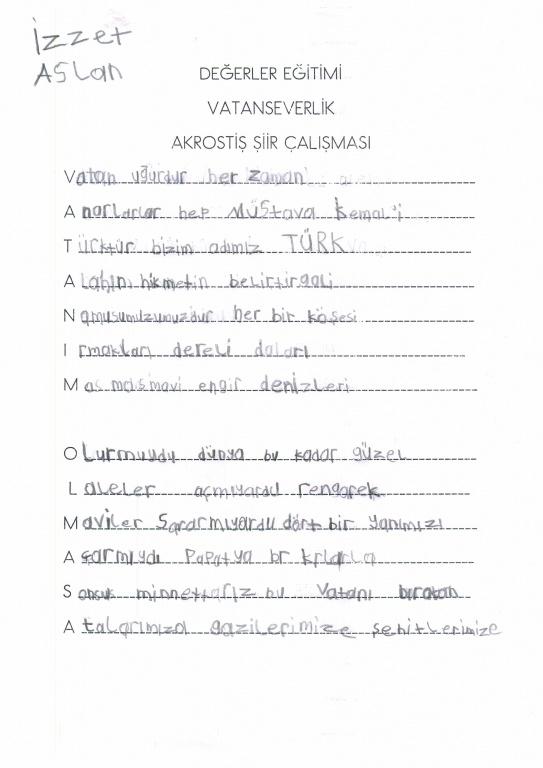 İzzet
ASLan
DEĞERLER EĞİTİMİ
VATANSEVERLİK
AKROSTİŞ ŞİİR ÇALIŞMASI
Vatan uğurdur her zaman
Anarlarlar hep Müstava Kemal'i
Türktür bizim adımız TÜRK
Alahın hikmetin belirtir
Namusumuzumuzdur her bir köşesi
Irmakları dereli daları
Mas masmavi engir denizleri
OLurmuydu dünya bu kadar güzel
Laleler açmıyarsu rengarek
Maviler Sararmıyardu dört bir yanımızı
Açarmıydı Papatya
Sonsuk minnettarız bu Vatanı bırakan
Atalarımıza gazilerimize şehitlerimize